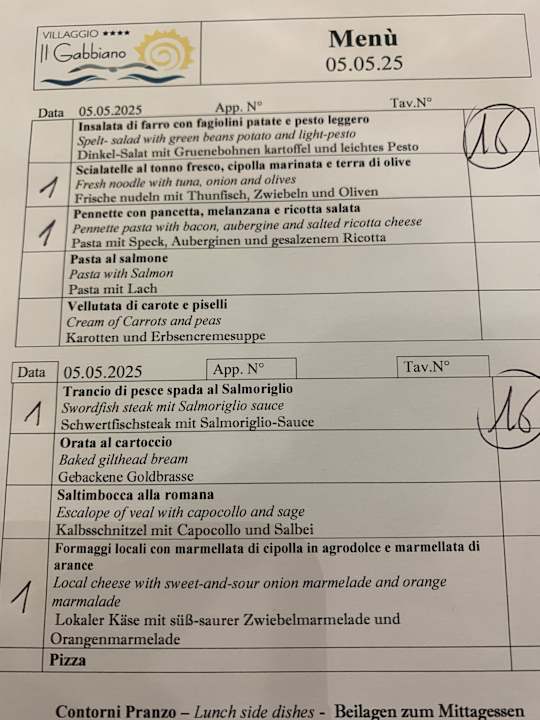 VILLAGGIO ★★★★
Il Gabbiano
Menù
05.05.25
Data 05.05.2025 App. N° Tav.N°
16
Insalata di farro con fagiolini patate e pesto leggero
Spelt- salad with green beans potato and light-pesto
Dinkel-Salat mit Gruenebohnen kartoffel und leichtes Pesto
1
Scialatelle al tonno fresco, cipolla marinata e terra di olive
Fresh noodle with tuna, onion and olives
Frische nudeln mit Thunfisch, Zwiebeln und Oliven
1
Pennette con pancetta, melanzana e ricotta salata
Pennette pasta with bacon, aubergine and salted ricotta cheese
Pasta mit Speck, Auberginen und gesalzenem Ricotta
Pasta al salmone
Pasta with Salmon
Pasta mit Lach
Vellutata di carote e piselli
Cream of Carrots and peas
Karotten und Erbsencremesuppe
Data 05.05.2025 App. N° Tav.N°
16
1
Trancio di pesce spada al Salmoriglio
Swordfish steak mit Salmoriglio sauce
Schwertfischsteak mit Salmoriglio-Sauce
Orata al cartoccio
Baked gilthead bream
Gebackene Goldbrasse
Saltimbocca alla romana
Escalope of veal with capocollo and sage
Kalbsschnitzel mit Capocollo und Salbei
1
Formaggi locali con marmellata di cipolla in agrodolce e marmellata di
arance
Local cheese with sweet-and-sour onion marmelade and orange
marmalade
Lokaler Käse mit süß-saurer Zwiebelmarmelade und
Orangenmarmelade
Pizza
Contorni Pranzo – Lunch side dishes - Beilagen zum Mittagessen